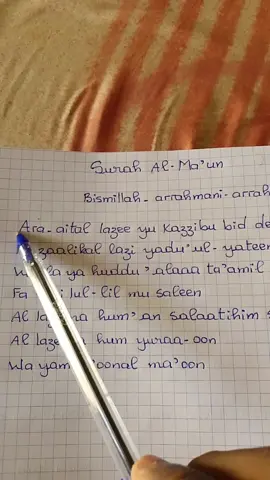 Surah Al-Ma'un
Bismillah-arrahmani-arrah
Ara-aital lazee yu kazzibu bid de
zaalikal lazi yadu'ul-yateen
la ya huddu 'alaaa ta'amil
Fa lul-lil mu saleen
Al la hum 'an salaatihim s
Al laze hum yuraa-oon
Wa yam 'oonal ma'oon